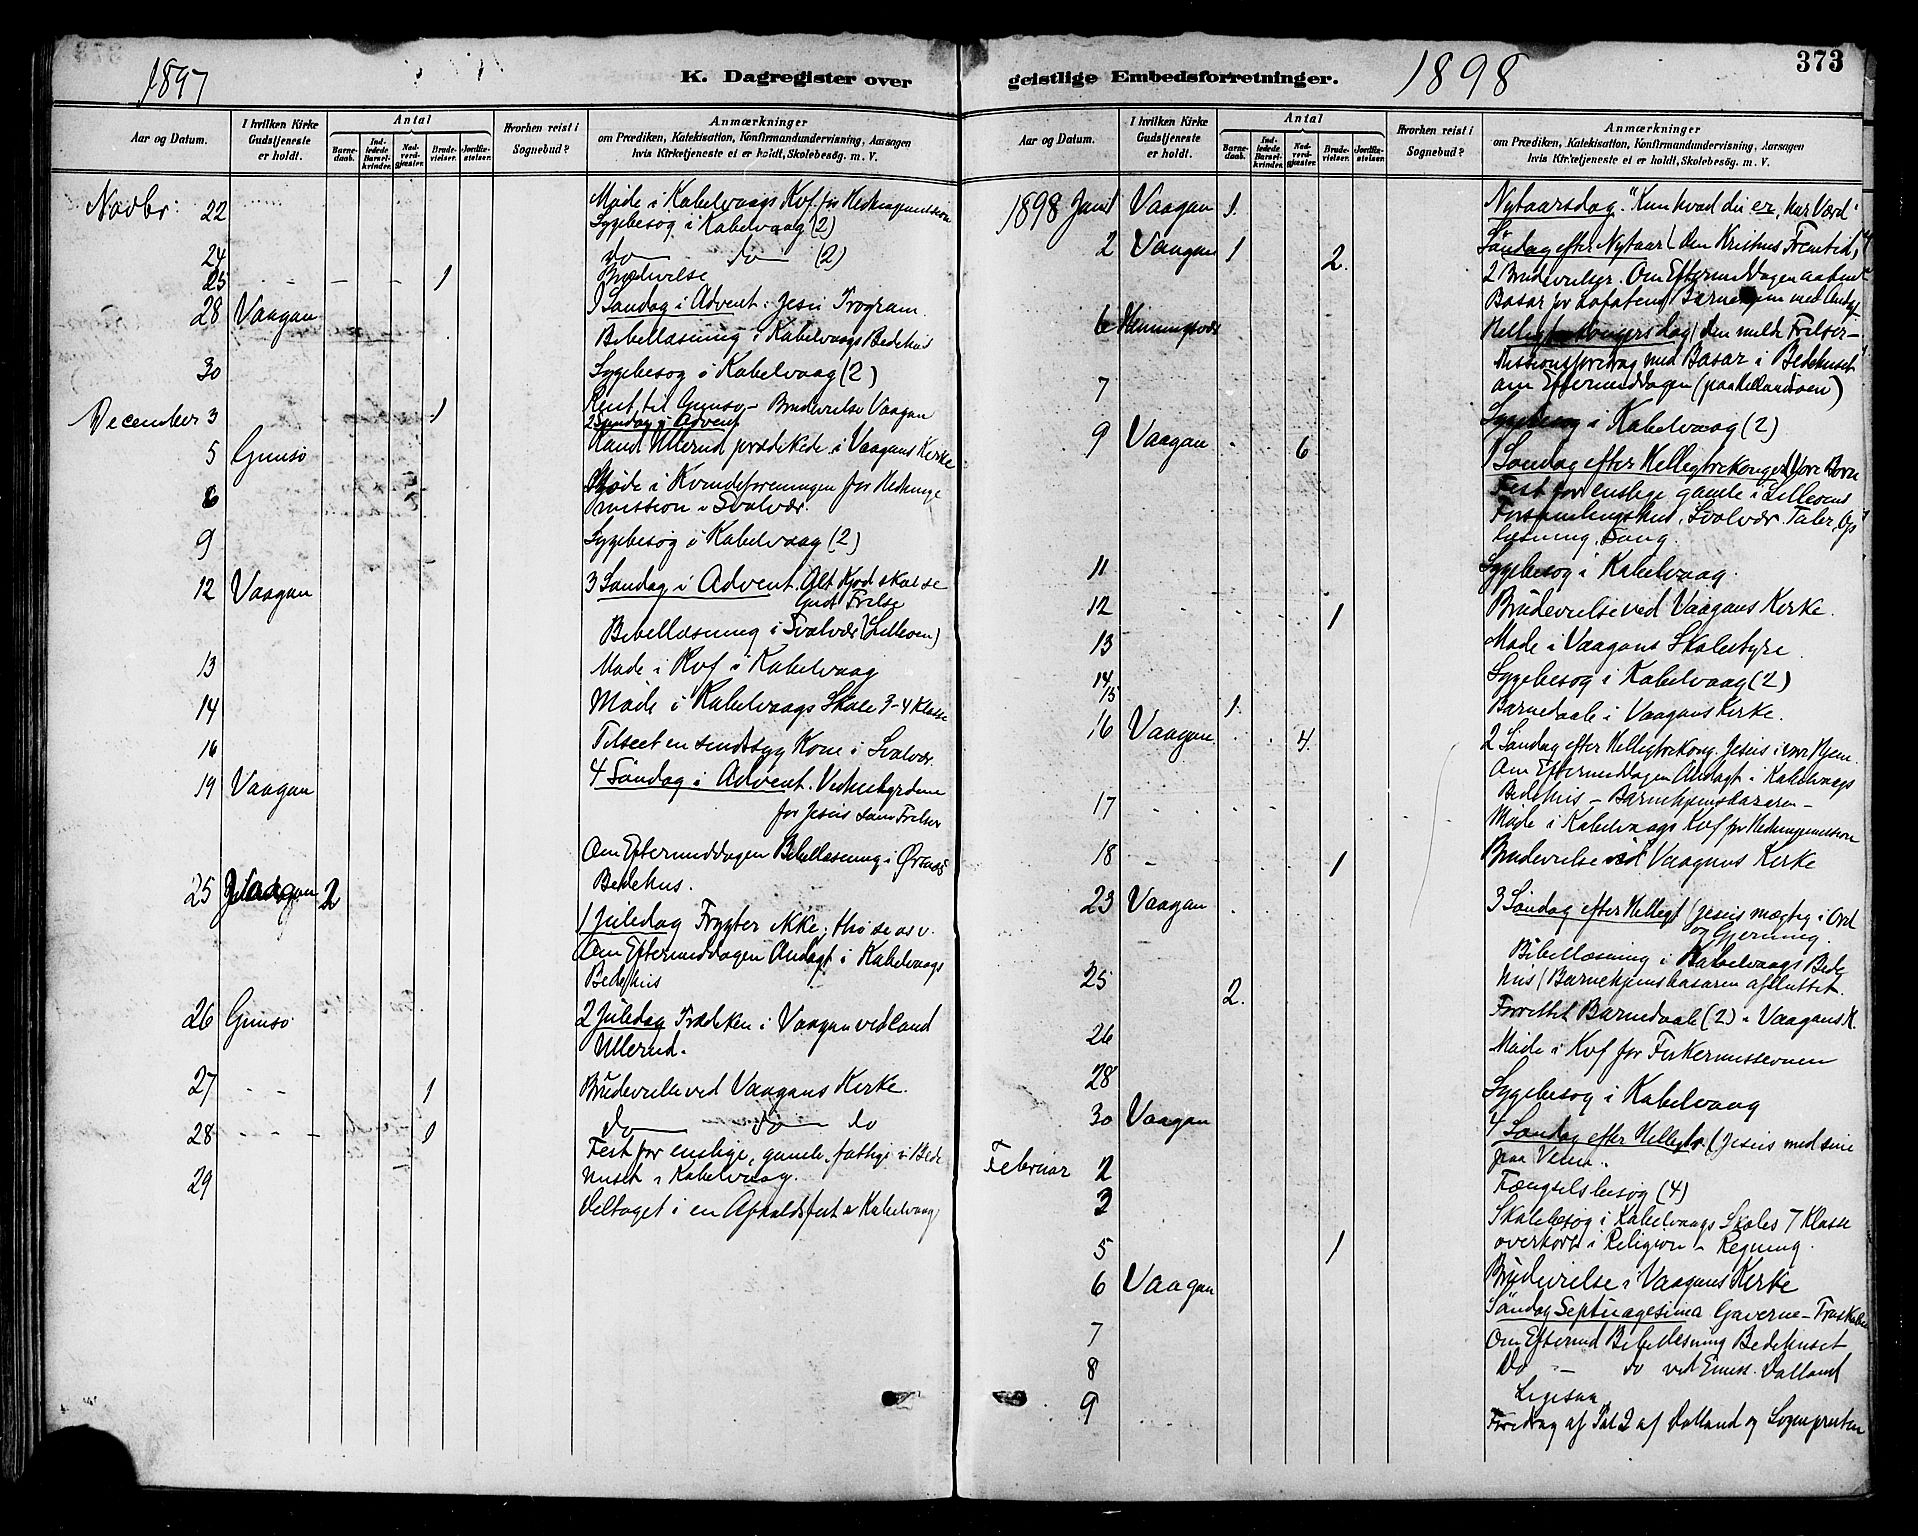 1897
K. Dagregister over
Aar og Datum.
I hvilken Kirke Gudstjeneste er holdt.
Antal
Barnedaab.
Indledede Barselkvinder.
Nadverdgjæster.
Brudevielser.
Jordfæstelser.
Hvorhen reist i Sognebud?
Anmærkninger
om Prædiken, Katekisation, Konfirmandundervisning, Aarsagen
hvis Kirketjeneste ei er holdt, Skolebesög. m. V.
Novbr: 22 Møde i Kabelvaags Kvf. for Hedningemission
Sygebesøg i Kabelvaag (2)
24 do do (2)
25 1 Brudevielse
28 Vaagan 1 Søndag i Advent: Jesu Program.
Bibellæsning i Kabelvaags Bedehus
30 Sygebesøg i Kabelvaag (2)
December 3 1 Reist til Gimsø - Brudevielse Vaagan
2 Søndag i Advent
5 Gimsø Kand Ullerud prædikede i Vaagans Kirke
6 Møde i Kvindeforeningen for Hedninge
mission i Svolvær.
9 Sygebesøg i Kabelvaag (2)
12 Vaagan 3 Søndag i Advent. Alt Kjød skal se
Guds Frelse
Bibellæsning i Svolvær (Lilleøen)
13 Møde i Kvf i Kabelvaag
14 Møde i Kabelvaags Skole 3-4 Klasse
16 Tilseet en sindssyg Kone i Svolvær.
19 Vaagan 4 Søndag i Advent. Vidnesbyrdene
for Jesus som Frelser
Om Eftermiddagen Bibellæsning i Ørsnes
Bedehus.
25 Vaagan 2
1 Juledag Frygter ikke; thi se os v.
Om Eftermiddagen Andagt i Kabelvaags
Bedehus
26 Gimsø 2 Juledag Prædiken i Vaagan ved Cand
Ullerud.
27 - - 1 Brudevielse ved Vaagans Kirke.
28 - - - 1 do do do
Fest for enslige, gamle, fattige i Bede
29 huset i Kabelvaag.
Deltaget i en Afholdsfest i Kabelvaag
geistlige Embedsforretninger.
1898
373
Aar og Datum.
I hvilken Kirke Gudstjeneste er holdt.
Antal
Barnedaab.
Indledede Barselkvinder.
Nadverdgjæster.
Brudevielser.
Jordfæstelser.
Hvorhen reist i Sognebud?
Anmærkninger
om Prædiken, Katekisation, Konfirmandundervisning, Aarsagen
hvis Kirketjeneste ei er holdt, Skolebesög, m. V.
1898 Jan 1 Vaagan 1. Nytaarsdag. "Kun hvad du er, har Værd"
2 Vaagan 1 2. Søndag efter Nytaar (Den Kristnes Fremtid)
2 Brudevielser. Om Eftermiddagen aabnet
Basar for Lofotens Barnehjem med Andagt
6 Henningsvær Helligtrekongersdag (Den milde Frelser -
Missionsforedrag med Basar i Bedehuset
7 om Eftermiddagen (paa Hellandsøen)
Sygebesøg i Kabelvaag (2)
9 Vaagan 6 1 Søndag efter Helligtrekonger (Vore Børn
Fest for enslige gamle i Lilleøens
Forsamlingshus, Svolvær. Taler, Op
læsning, Sang.
11 Sygebesøg i Kabelvaag.
12 1 Brudevielse ved Vaagans Kirke.
13 Møde i Vaagans Skolestyre
14 Sygebesøg i Kabelvaag (2)
15 1. Barnedaab i Vaagans Kirke.
16 Vaagan 4 2 Søndag efter Helligtrekong. Jesus i vore Hjem
Om Eftermiddagen Andagt i Kabelvaags
Bedehus - Barnehjemsbazaren -
17 Møde i Kabelvaags Kvf for Hedningemission
18 1 Brudevielse ved Vaagans Kirke
23 Vaagan 3 Søndag efter Helligt (Jesus mægtig i Ord
og Gjerning.
Bibellæsning i Kabelvaags Bede
hus (Barnehjemsbasaren afsluttet.
25 2. Forrettet Barnedaab (2) i Vaagans K.
26 Møde i Kvf for Fiskermissionen
28 Sygebesøg i Kabelvaag
30 Vaagan 4 Søndag efter Helligtr. (Jesus med sine
paa Veien.
Februar 2 Fængselsbesøg (4)
3 Skolebesøg i Kabelvaags Skoles 7 Klasse
overhørt i Religion - Regning.
5 1 Brudevielse i Vaagans Kirke
6 Vaagan Søndag Septuagesima Gaverne - Troskaben
Om Efterm Bibellæsning Bedehuset
7 Do - do ved Emiss. Dalland
8 Ligesaa
9 Foredrag af Sal 2 af Dalland og Sognepresten